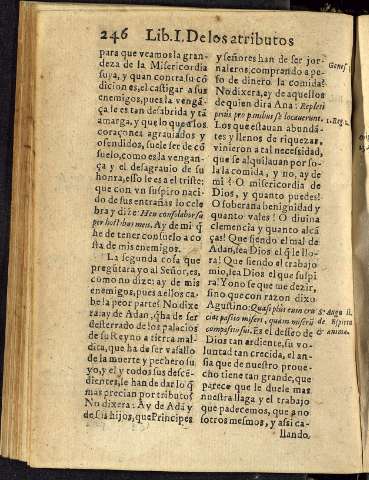 246 Lib. I. De los atributos
para que veamos la gran-
deza de la Misericordia
suya, y quan contra su cõ
dicion es, el castigar a sus
enemigos, pues la vengã
ça le es tan desabrida y tã
amarga, y que lo que a los
coraçones agrauiados y
ofendidos, suele ser de cõ
suelo, como es la vengan-
ça, y el desagrauio de su
honra, esso le es a el triste;
que con vn suspiro naci-
do de sus entrañas lo cele
bra y dize: Heu consolabor su
per hostibus meis. Ay de mi q̃
he de tener consuelo a co
sta de mis enemigos.
La segunda cosa que
pregũtara yo al Señor, es,
como no dize: ay de mis
enemigos, pues a ellos ca-
be la peor parte? No dixe
ra: ay de Adan, q̃ ha de ser
desterrado de los palacios
de su Reyno a tierra mal-
dita, que ha de ser vasallo
de la muerte y pechero su
yo, y el y todos sus descẽ-
dientes, le han de dar lo q̃
mas precian por tributos?
No dixera: Ay de Adã y
de sus hijos, que Principes
y señores han de ser jor-
naleros, comprando a pe-
so de dinero la comida?
No dixera, ay de aquellos
de quien dira Ana: Repleti
prius pro panibus se locauerunt.
Los que estauan abundã-
tes y llenos de riquezas,
vinieron a tal necessidad,
que se alquilauan por so-
la la comida, y no, ay de
mi? O misericordia de
Dios, y quanto puedes!
O soberana benignidad y
quanto vales! O diuina
clemencia y quanto alcã
ças! Que siendo el mal de
Adan, sea Dios el q̃ le llo-
ra! Que siendo el trabajo
mio, sea Dios el que suspi
ra! Yo no se que me dezir,
sino que con razon dixo
Agustino: Quasi plus eum cru
ciat passio miseri, quam miserũ
compassio sui. Es el desseo de
Dios tan ardiente, su vo-
luntad tan crecida, el an-
sia que de nuestro proue-
cho tiene tan grande, que
parece que le duele mas
nuestra llaga y el trabajo
que padecemos, que a no
sotros mesmos, y assi ca-
llando,
Genes.
1. Reg. 2.
S. Augu
de Spiritu
& anima.